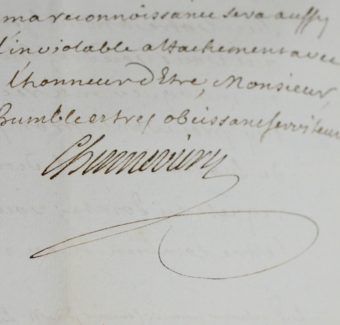 ma reconnoissance sera aussy
l'inviolable attachement avec
l'honneur d'Etre, Monsieur,
humble et tres obeissant serviteur